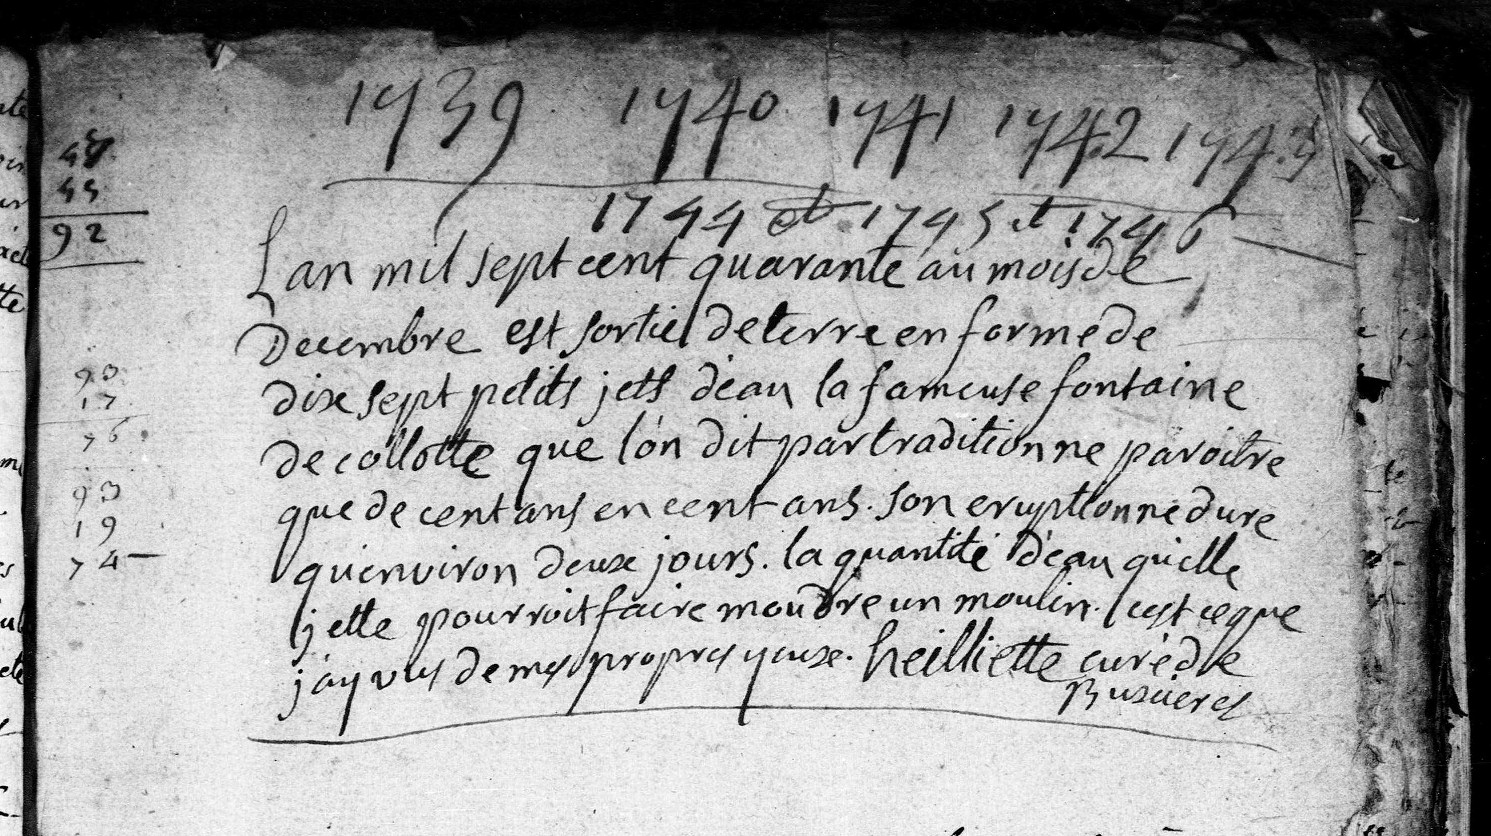 1739 1740 1741 1742 1743
1744 et 1745 et 1746
48
44
92
93
17
76
93
19
74
Lan mil sept cent quarante au mois de
Decembre est sortie de terre en forme de
dix sept petits jets d'eau la fameuse fontaine
de collotte que lon dit par tradition ne paroitre
que de cent ans en cent ans. son eruption ne dure
qu'environ deux jours. la quantité d'eau qu'elle
jette pourroit faire moudre un moulin. c'est ce que
j'ay vus de mes propres yeux. heilliette curé de
Buxieres